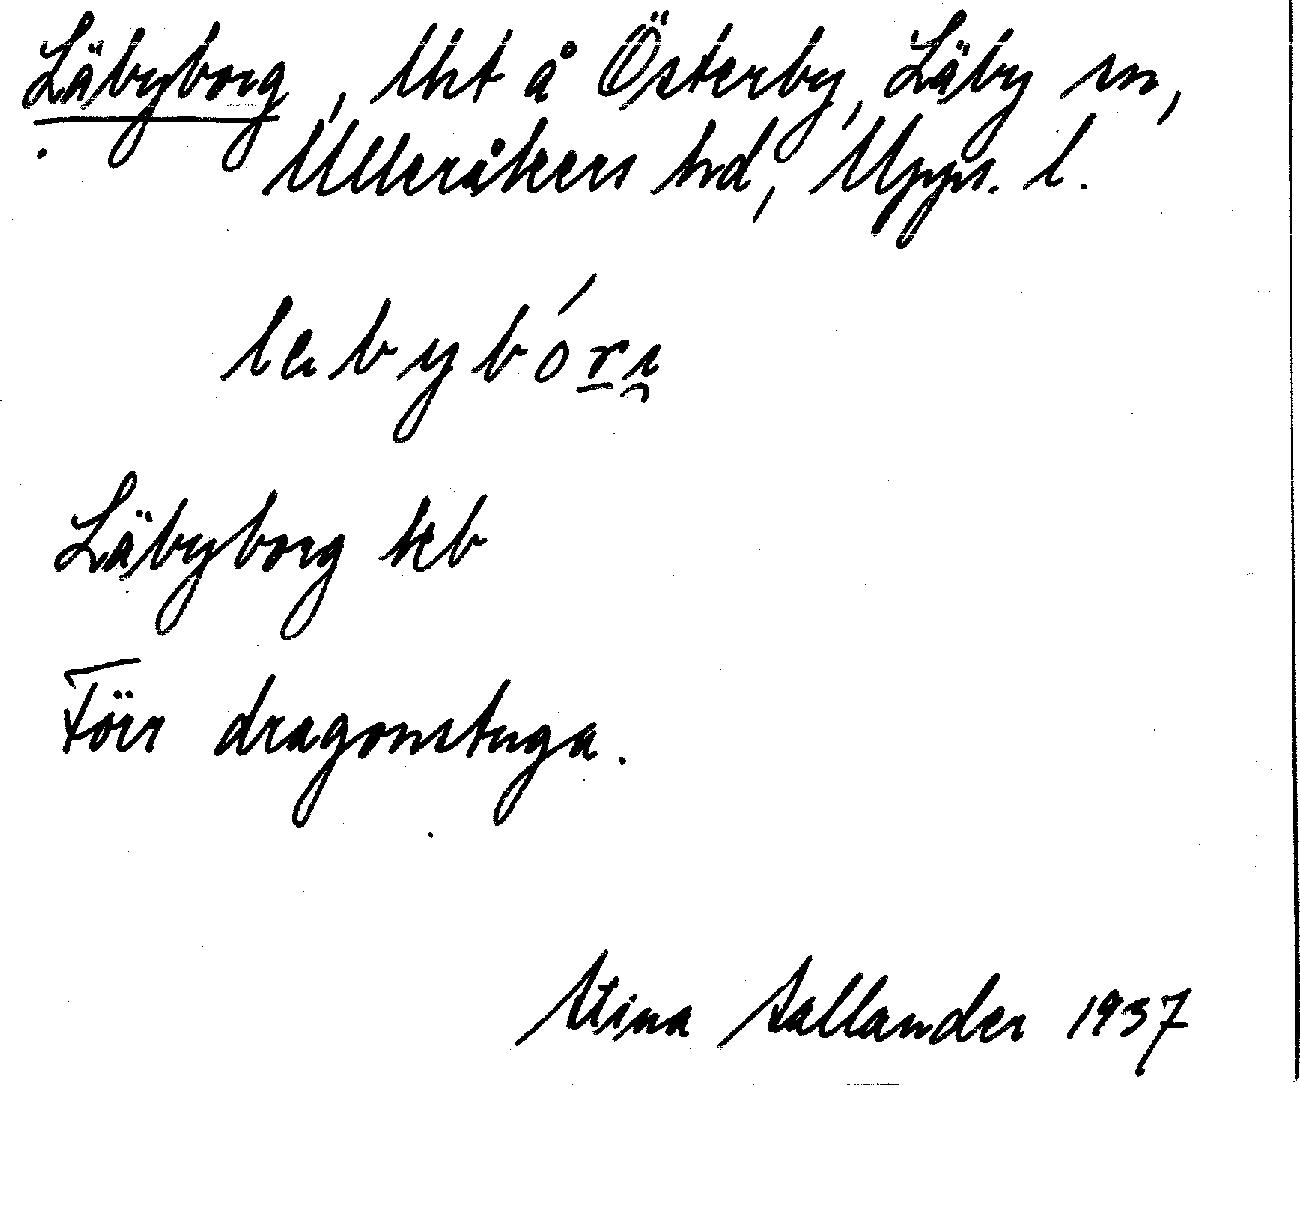 Läbyborg, lht å Österby, Läby sn,
Ulleråkers hd, Upps. l.
Läbyborg kb
Förr dragonstuga.
Stina Sallander 1937